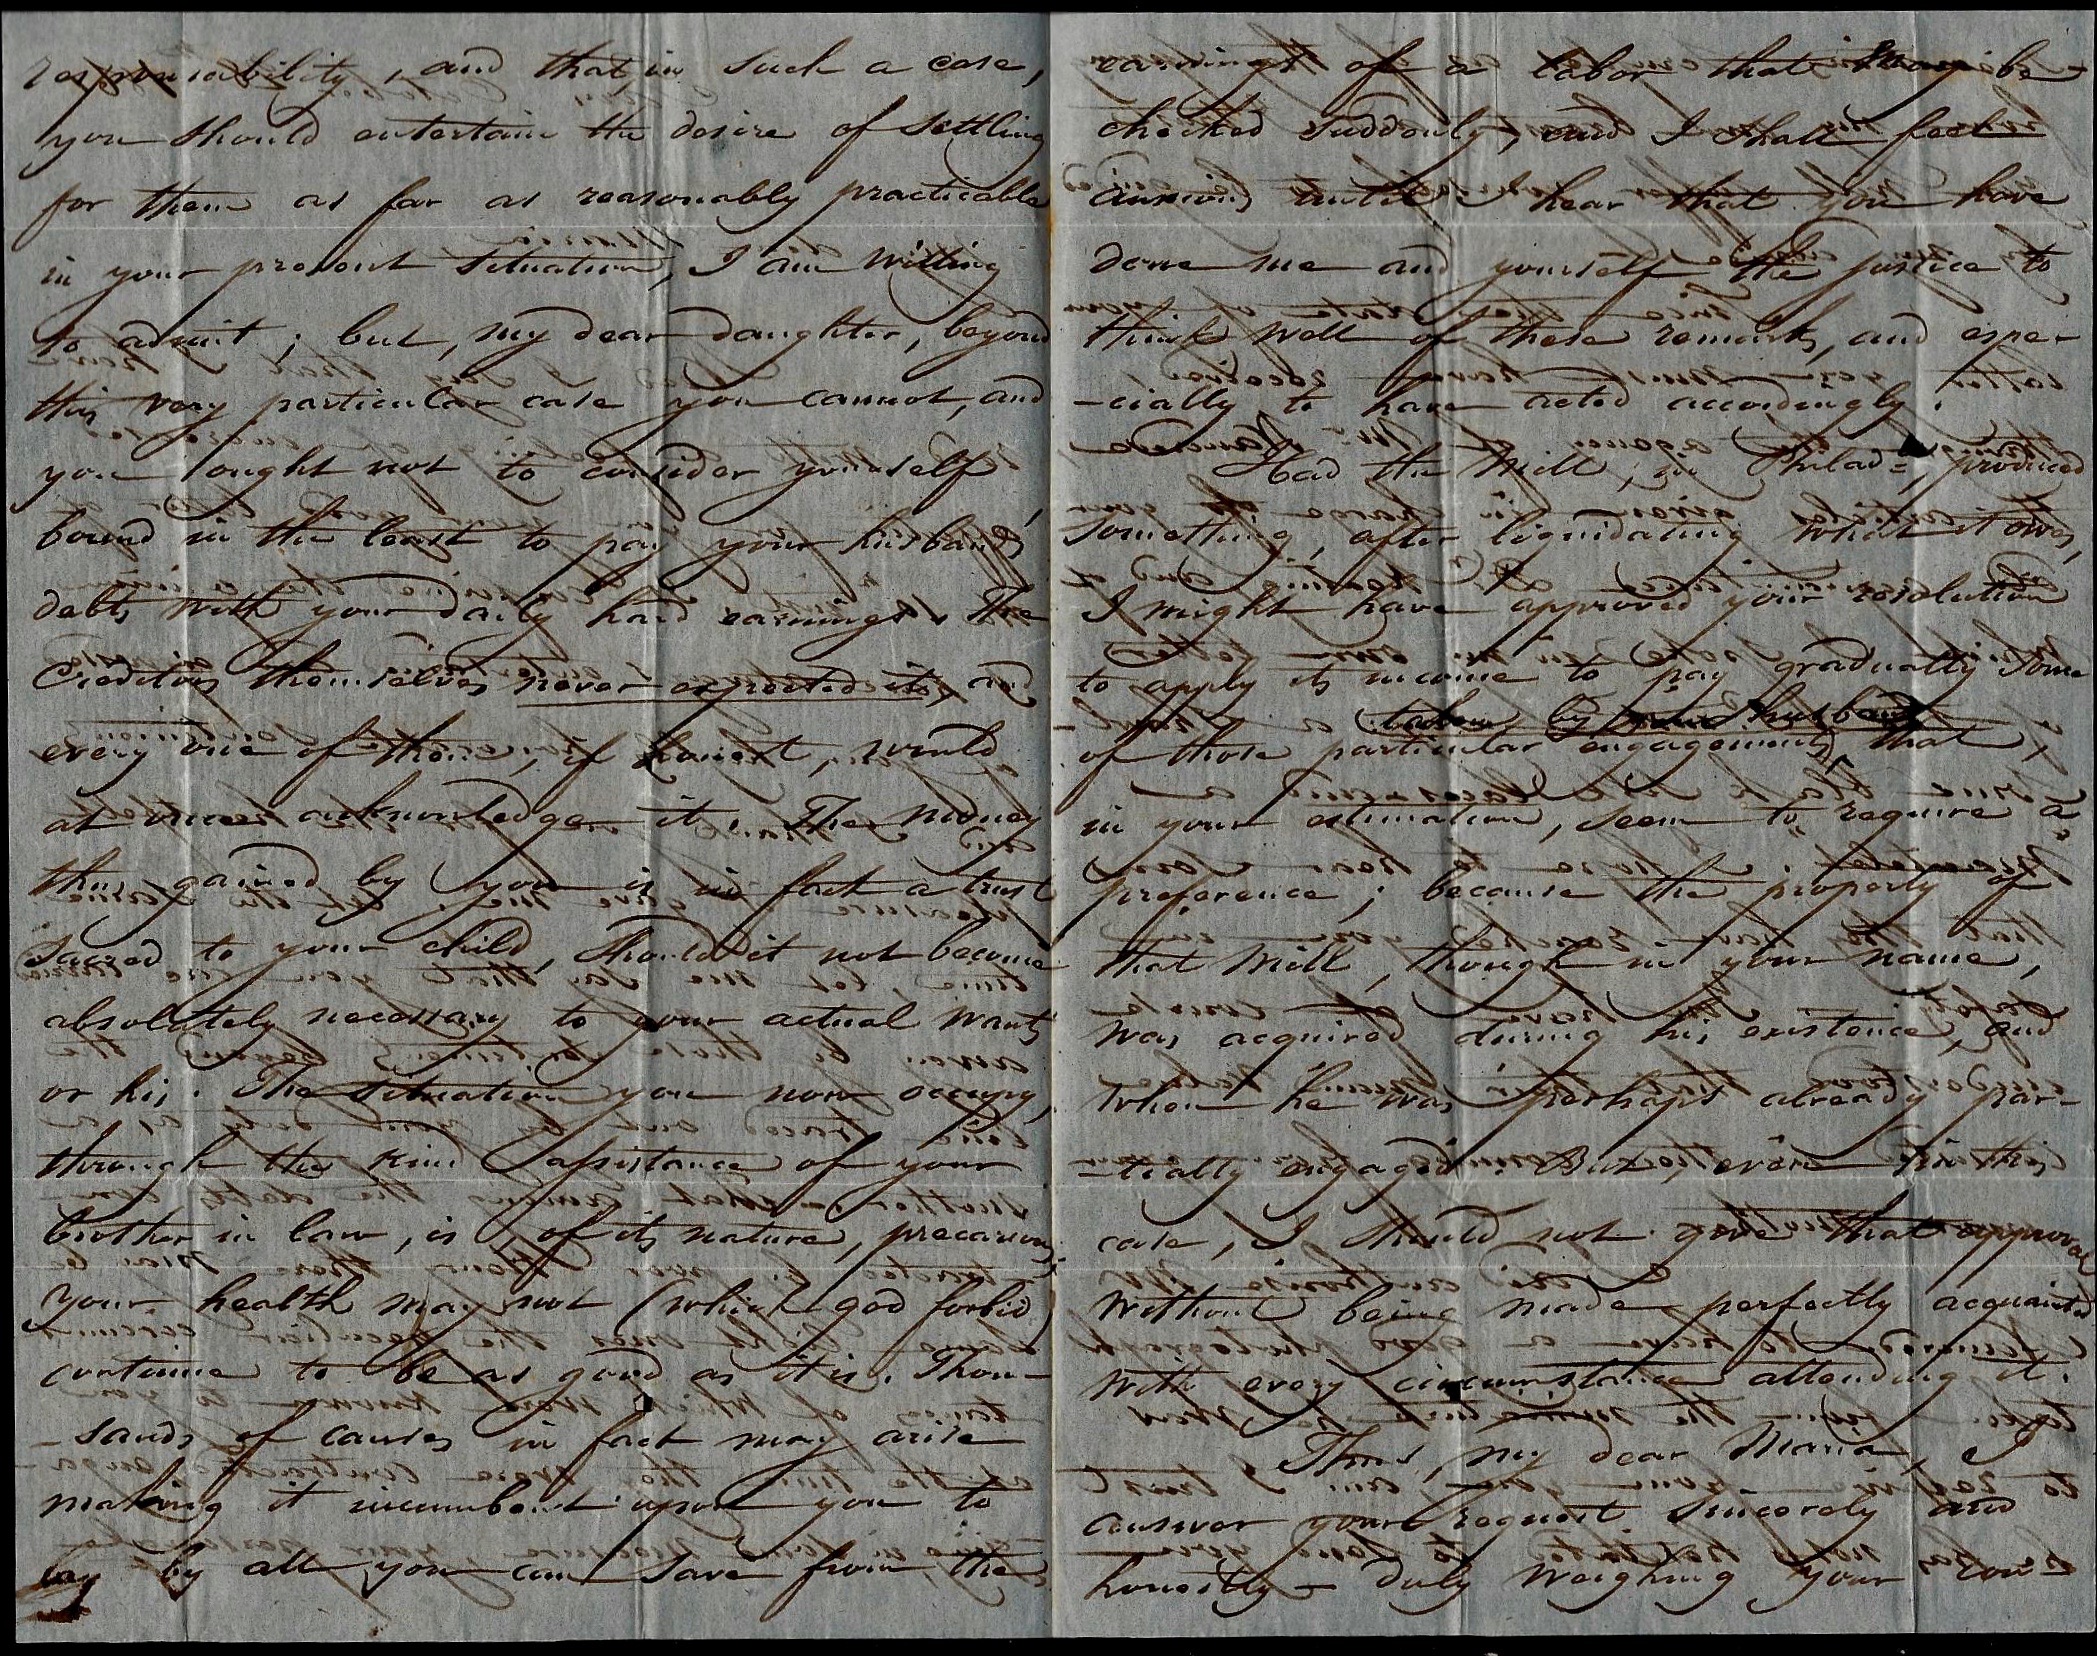 responsability, and that in such a case,
you should entertain the desire of settling
for them as far as reasonably practicable
in your present situation, I am willing
to admit; but, my dear daughter, beyond
this very particular case you cannot, and
you ought not to consider yourself
bound in the least to pay your husband's
debts with your daily hard earnings. The
Creditors themselves never expected it, and
every one of them, if honest, would
at once acknowledge it. The money
thus gained by you is in fact a trust
sacred to your child, should it not become
absolutely necessary to your actual wants
or his. The situation you now occupy,
through the kind assistance of your
brother in law, is, of its nature, precarious;
your health may not (which god forbid)
continue to be as good as it is. Thou-
-sands of causes in fact may arise
making it incumbent upon you to
lay by all you can save from the
earnings of a labor that may be
checked suddenly, and I shall feel
anxious until I hear that you have
done me and yourself the justice to
think well of these remarks, and espe-
-cially to have acted accordingly.
Had the Mill, in Philad=, produced
something, after liquidating what it owes,
I might have approved your resolution
to apply its income to pay gradually some
taken by your husband
of those particular engagements, that,
in your estimation, seem to require a
preference; because the property of
that Mill, though in your name,
was acquired during his existence, and
when he was perhaps already par-
-tially engaged. But, even in this
case, I should not give that approval
without being made perfectly acquainted
with every circumstance attending it.
Thus, my dear Maria, I
answer your request sincerely and
honestly – duly weighing your